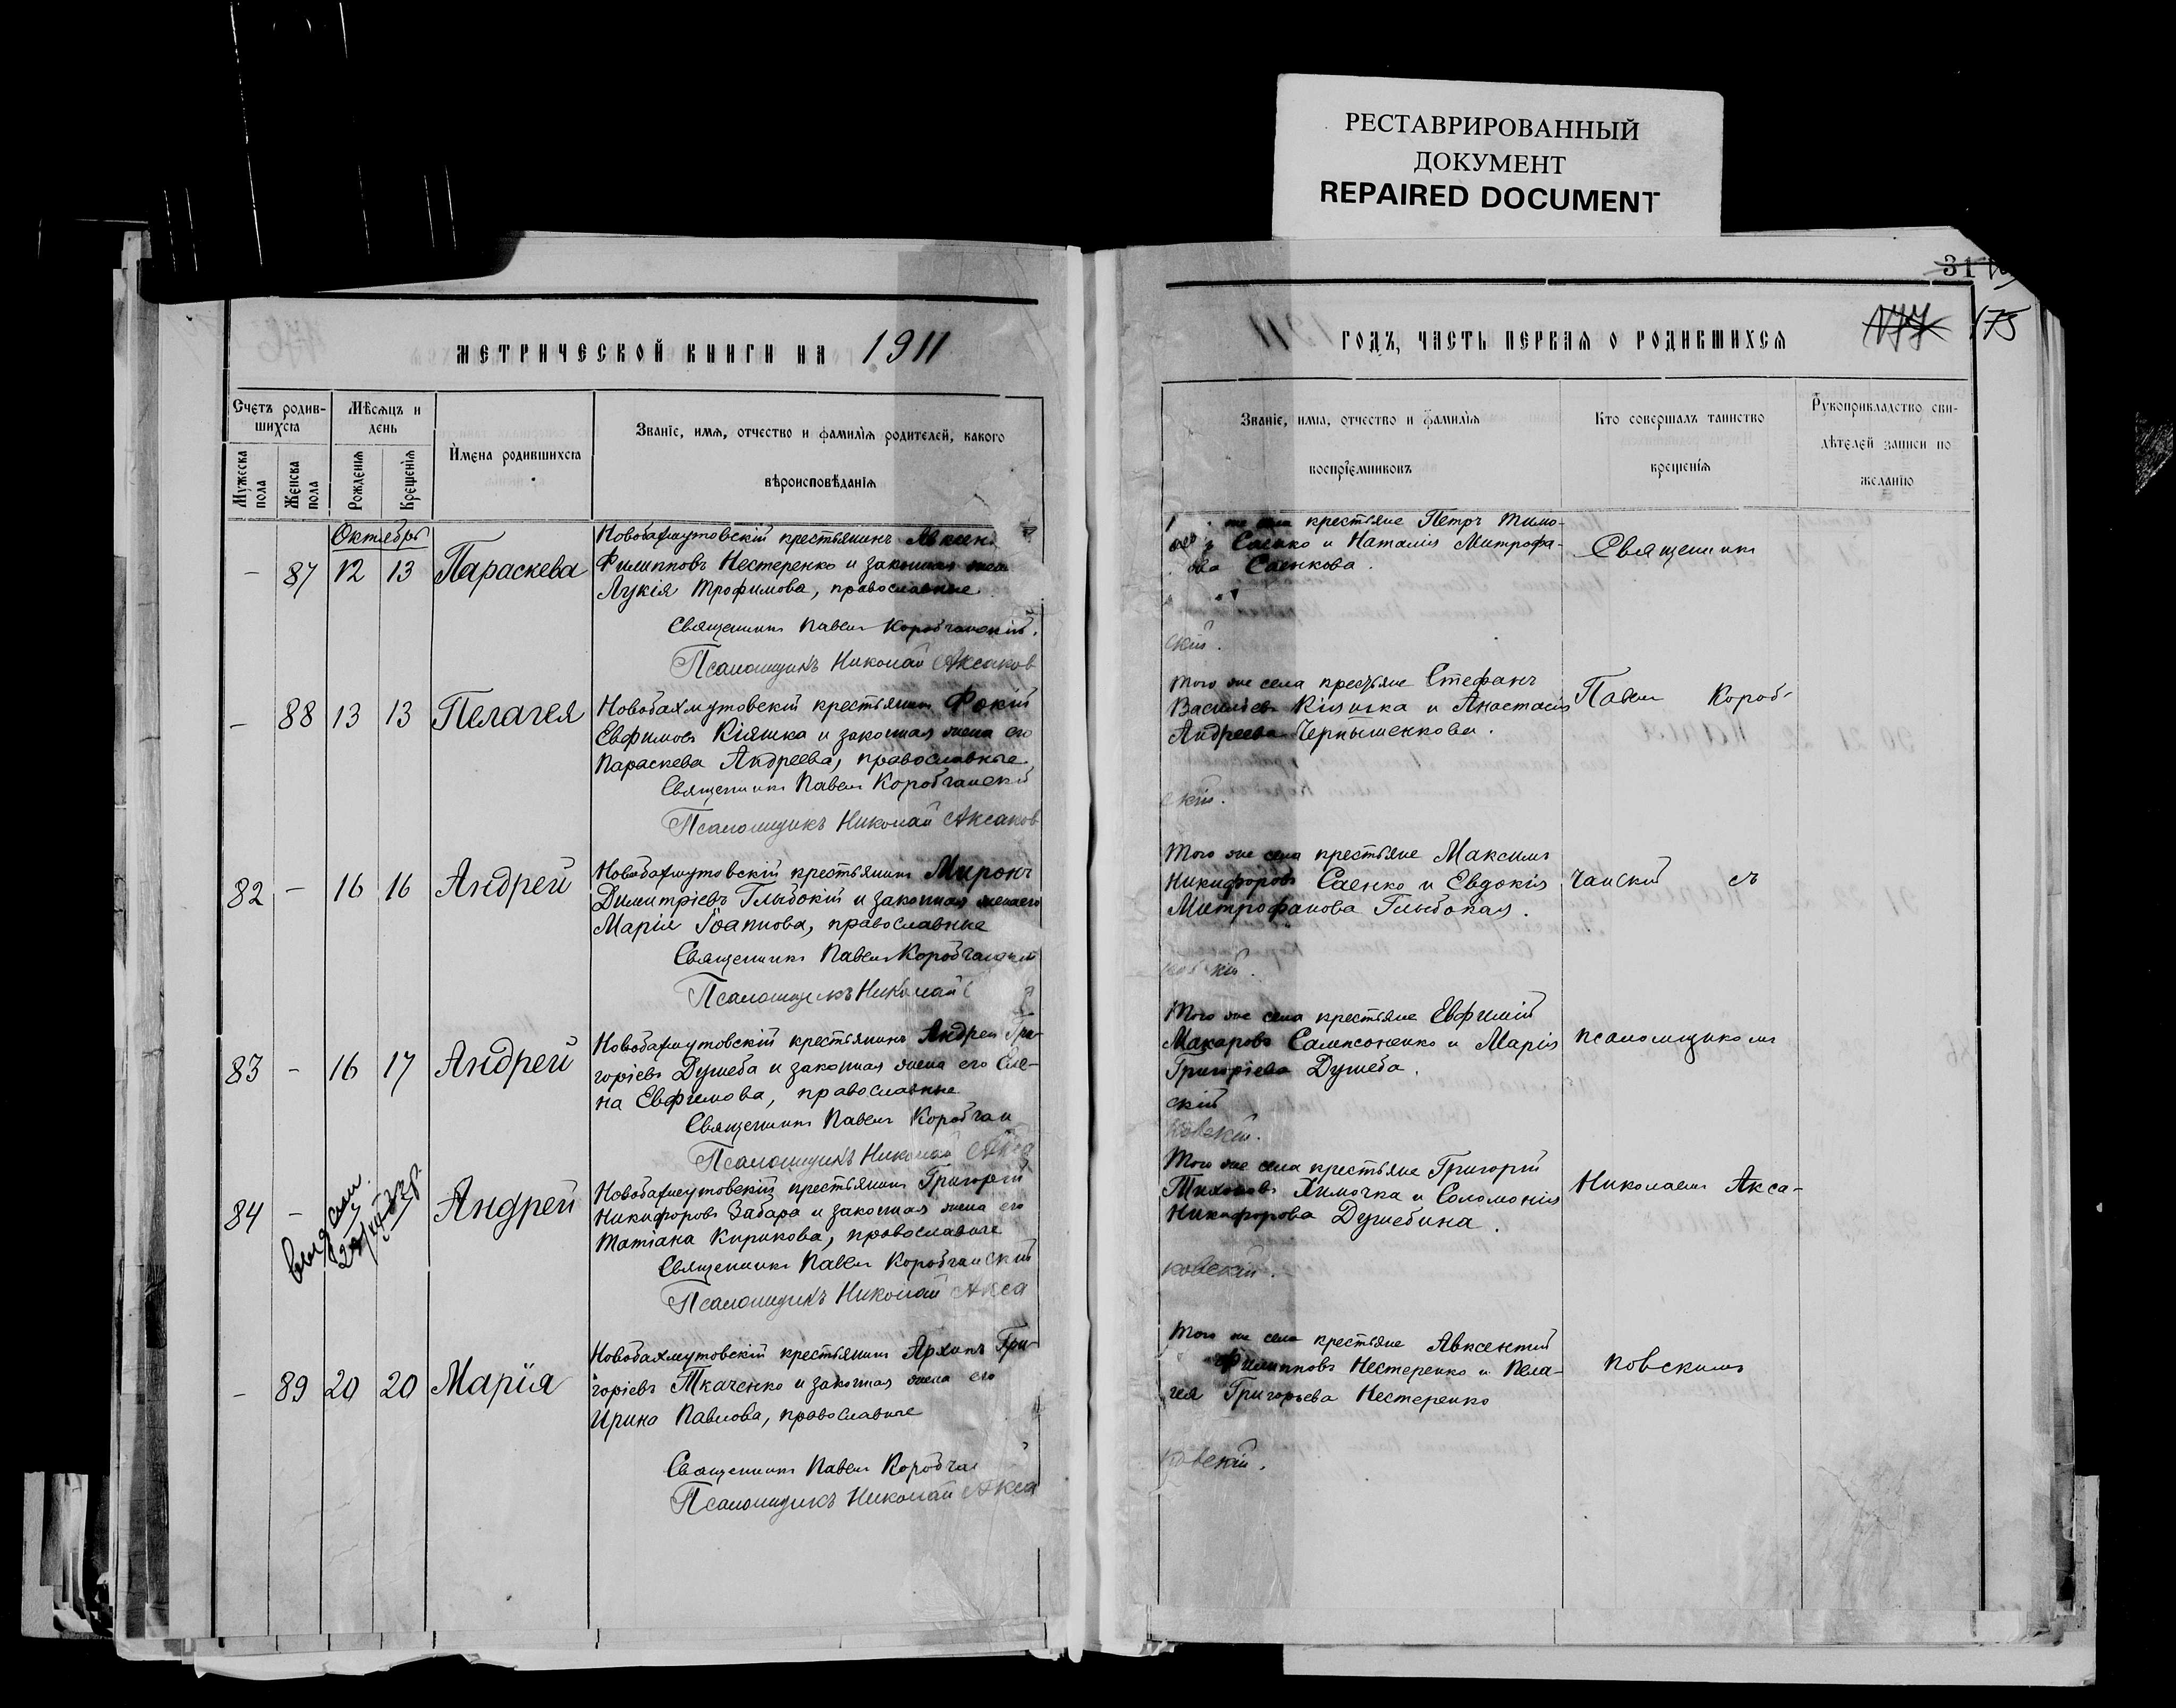 РЕСТАВРИРОВАННЫЙ
ДОКУМЕНТ
REPAIRED DOCUMENT
31
175
МЕТРИЧЕСКОЙ КНИГИ НА 1911
ГОДЪ, ЧАСТЬ ПЕРВАЯ О РОДИВШИХСЯ
Счетъ родив-
шихся
Мужеска пола
Женска пола
Мѣсяцъ и
день
Рожденія
Крещенія
Имена родившихся
Званіе, имя, отчество и фамилія родителей, какого
вѣроисповѣданія
Званіе, имя, отчество и фамилія
воспріемниковъ
Кто совершалъ таинство
крещенія
Рукоприкладство сви-
дѣтелей записи по
желанію
Октябрь
– 87 12 13 Параскева
Новобахмутовскій крестьянинъ
Филипповъ Нестеренко и законная жена
Лукія Трофимова, православные
Священникъ Павелъ Коробчанскій.
Псаломщикъ Николай Аксаков
крестьяне Петръ Тимо-
Саенко и Наталія Митрофа-
Саенкова.
скій.
Священникъ
– 88 13 13 Пелагея
Новобахмутовскій крестьянинъ Фокій
Евфимовъ Кіяшка и законная жена его
Параскева Андреева, православные
Священникъ Павелъ Коробчанскій
Псаломщикъ Николай Аксаков
Того же села крестьяне Стефанъ
Васильевъ Кіяшка и Анастасія
Андреева Чернышенкова.
скій.
Павелъ Короб-
82 – 16 16 Андрей
Новобахмутовскій крестьянинъ Миронъ
Димитріевъ Глыбокій и законная жена его
Марія Іоаннова, православные
Священникъ Павелъ Коробчанскій
Псаломщикъ Николай
Того же села крестьяне Максимъ
Никифоровъ Саенко и Евдокія
Митрофанова Глыбокая.
чанскій съ
83 – 16 17 Андрей
Новобахмутовскій крестьянинъ Андрей Гри-
горіевъ Дужеба и законная жена его Еле-
на Евфимова, православные
Священникъ Павелъ Коробчан
Псаломщикъ Николай
Того же села крестьяне Евфимій
Макаровъ Сампсоненко и Марія
Григоріева Дужеба.
скій
ковскій.
псаломщикомъ
84 –
Андрей
Новобахмутовскій крестьянинъ Григорій
Никифоровъ Забара и законная жена его
Татіана Кирикова, православные
Священникъ Павелъ Коробчанскій
Псаломщикъ Николай Акса
Того же села крестьяне Григорій
Тихоновъ Химочка и Соломонія
Никифорова Дужебина.
ковскій.
Николаемъ Акса-
– 89 20 20 Марія
Новобахмутовскій крестьянинъ Архипъ Гри-
горіевъ Ткаченко и законная жена его
Ирина Павлова, православные
Священникъ Павелъ Коробча
Псаломщикъ Николай Акса
Того же села крестьяне Авксентій
Филипповъ Нестеренко и Пела-
гея Григорьева Нестеренко
ковскій.
ковскимъ